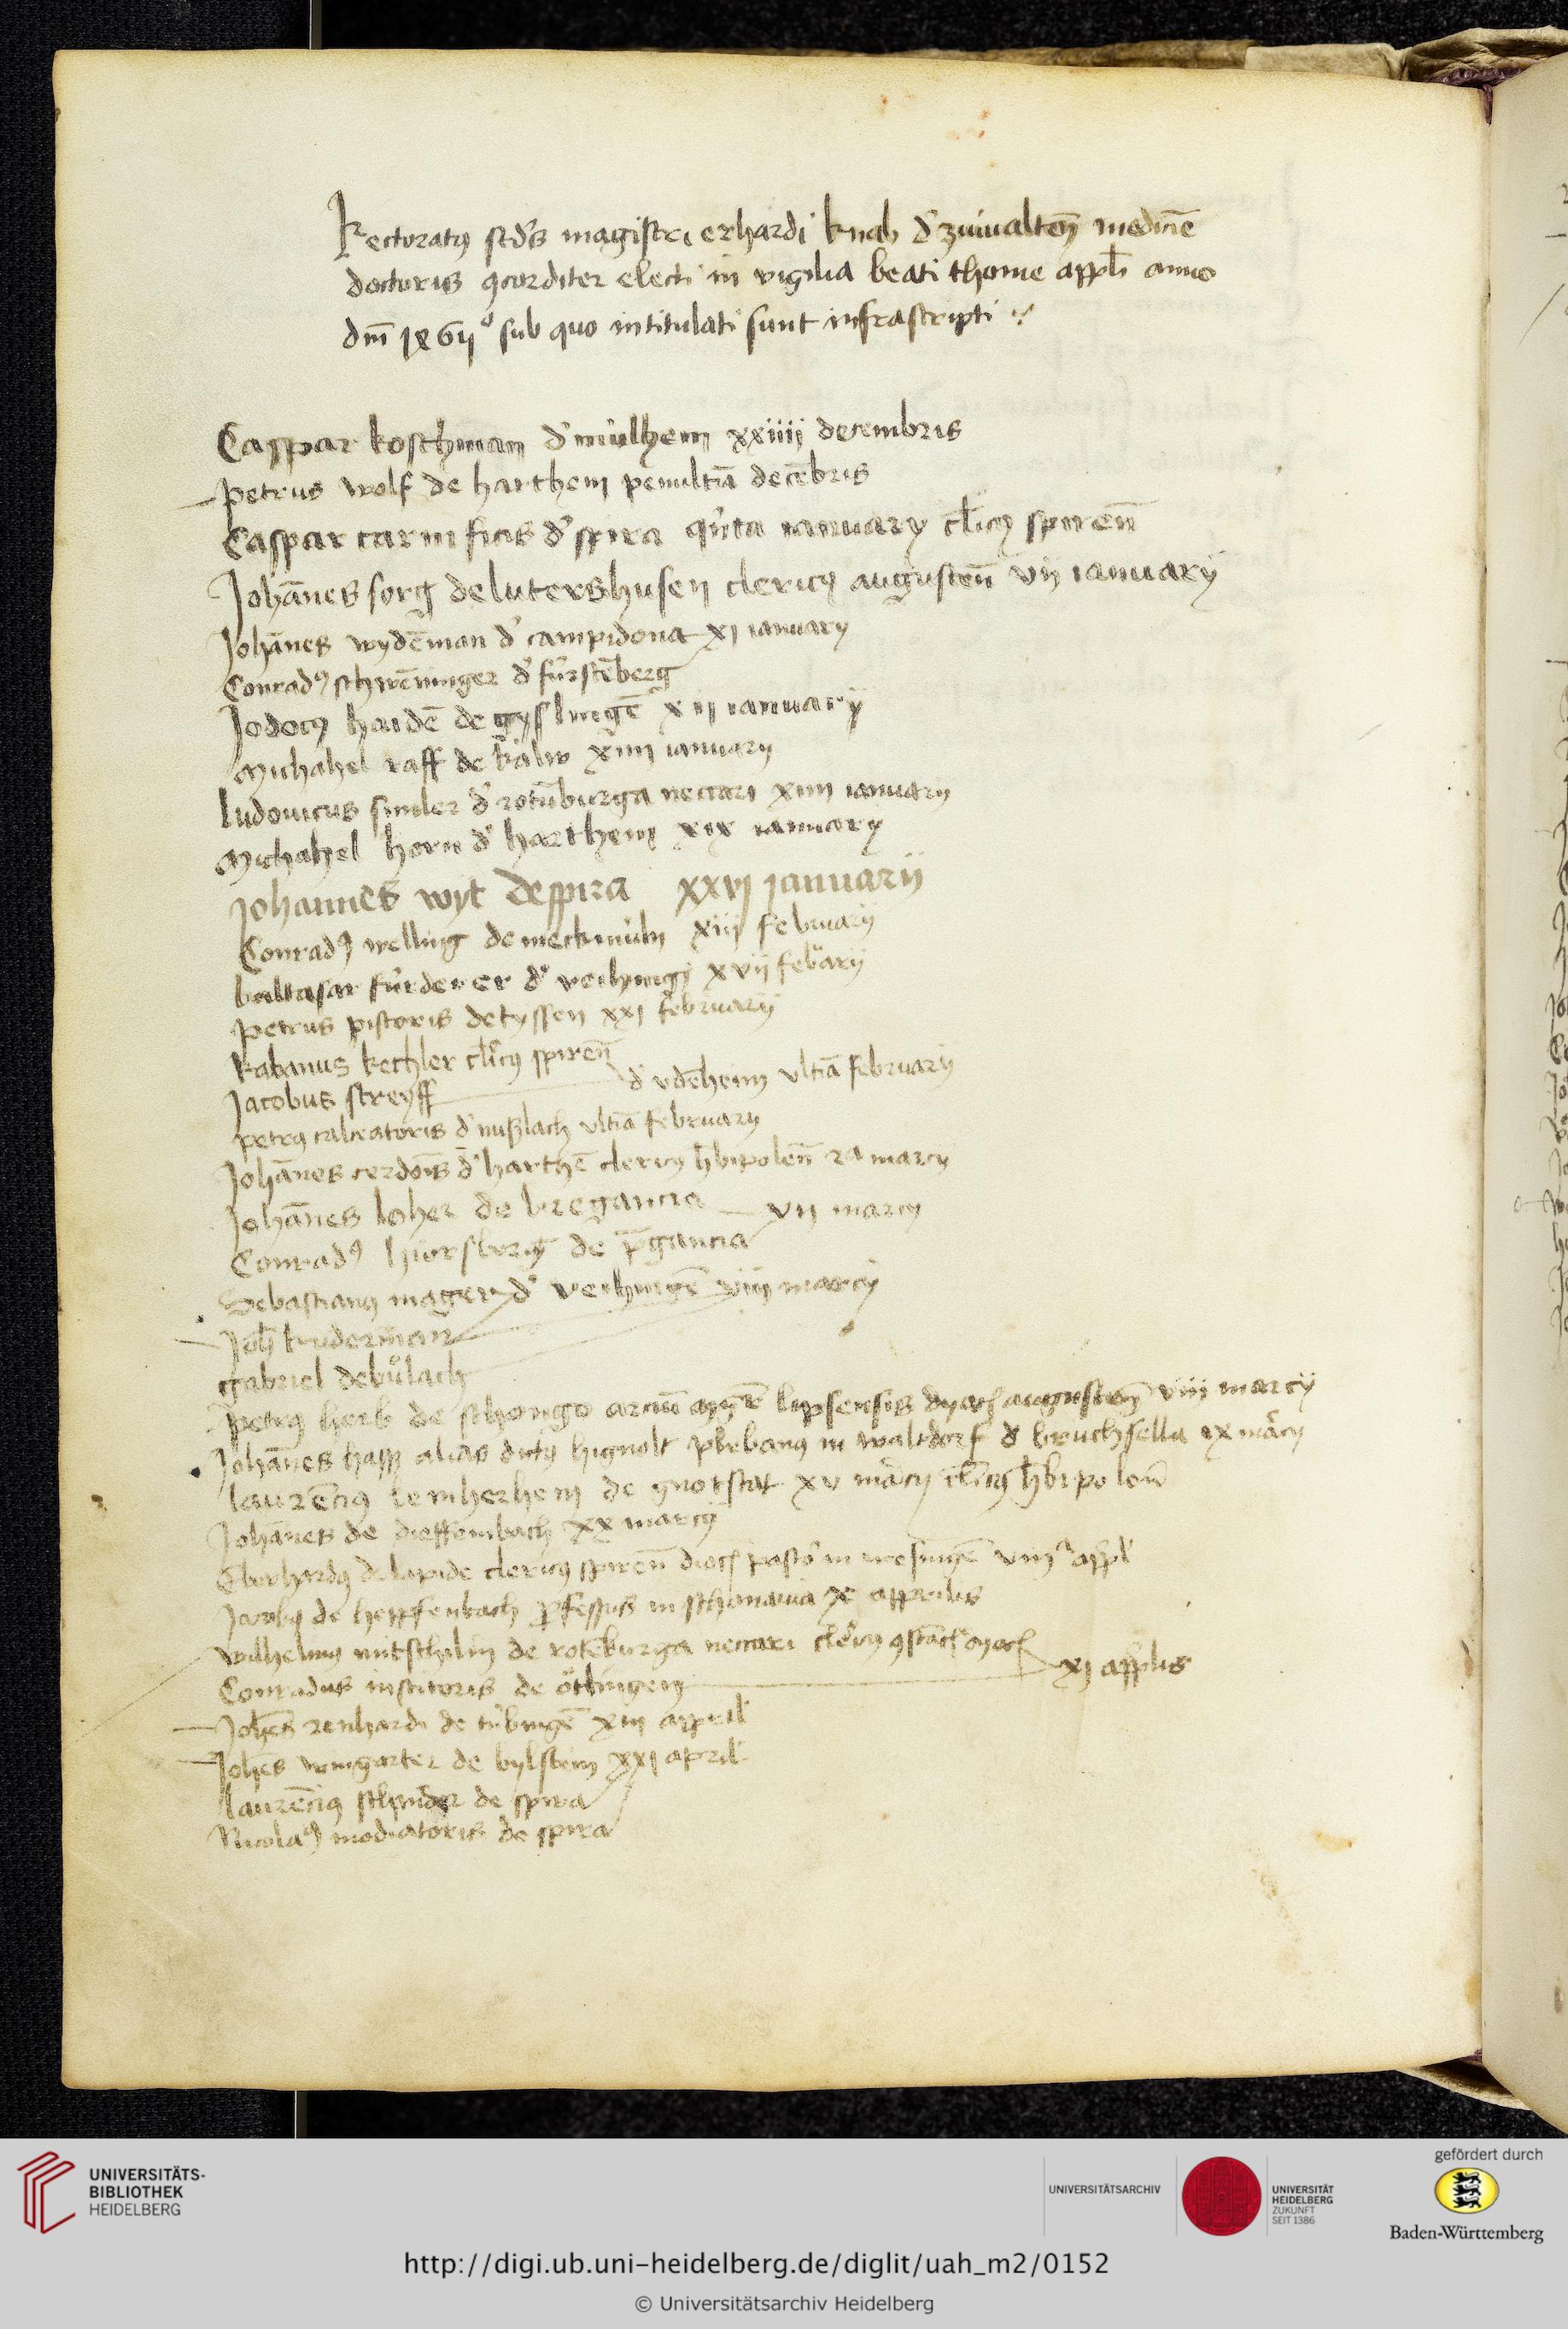 Rectoratus scd's magistri erhardi knab d' zwiualten̄ medicīe
doctoris ꝯcorditer electi in vigilia beati thome appl̄i anno
dm̄ 1467º sub quo intitulati sunt infrascripti
Caspar koschman d' mülhem xxiiij decembris
petrus wolf de harthem penultiā decēbris
Caspar carnificis d' spira qn̄ta ianuarij cl̄icꝯ spiren̄
Johānes sorg de lutershusen clericꝯ augusten̄ vij ianuarij
Johānes wydēman d' campidona xj ianuarij
Conradꝯ schwēninger d' fürstēberg
Jodocꝯ haidē de gyslingē xij ianuarij
Michahel raff de kalw xiiij ianuarij
ludouicus simler d' rotūburga neccari xiiij ianuarij
Michahel horn d' harthem xix ianuarij
Johannes wyt de spira xxvj januarij
Conradꝯ welling de meckmüln xiij februarij
baltasar fürderer d' veihingē xvij feb̄arij
petrus pistoris de tyssen xxj februarij
Rabanus kechler cl̄icꝯ spiren̄
Jacobus streyff d' vdēheim vltiā februarij
petrꝯ calceatoris d' nußlach vltiā februarij
Johānes cerdōis d' harthē clericꝯ h̄bipolen̄ 2a marcij
Johānes loher de bregancia vij marcij
Conradꝯ hiorsberg de p̄gancia
Sebastianꝯ mager d' veihingē viij marcij
Joh̄ kuderman
gabriel de bůlach
petrꝯ herb de schongo arciū mgr̄ lipsensis dyoc augusten̄ viij marcij
Johānes happ alias dictꝯ hignolt plebanꝯ in waltdorf d' bruchsella ix marcij
laurēciꝯ lemherhem de gnotstat xv marcij cl̄icꝯ h̄bipolen̄
Johānes de dieffembach xx marcij
Eberhardꝯ de lapide clericꝯ spiren̄ dioc pastor in mesingē viijª appl'
Jacobꝯ de heppfenbach ꝓfessus in schonauia x apprilis
wilhelmꝯ nütschelin de rotēburga neccari cl̄icꝯ ꝯstāc dyoc
Conradus institoris de ötlingen xj applis
Joh̄es renhardi de tübingē xiij appril'
Joh̄es wingarter de bylstein xxj april'
laurēciꝯ schnider de spira
Nicolaꝯ mediatoris de spira
UNIVERSITÄTS-
BIBLIOTHEK
HEIDELBERG
UNIVERSITÄTSARCHIV
UNIVERSITÄT
HEIDELBERG
ZUKUNFT
SEIT 1386
gefördert durch
Baden-Württemberg
http://digi.ub.uni-heidelberg.de/diglit/uah_m2/0152
© Universitätsarchiv Heidelberg